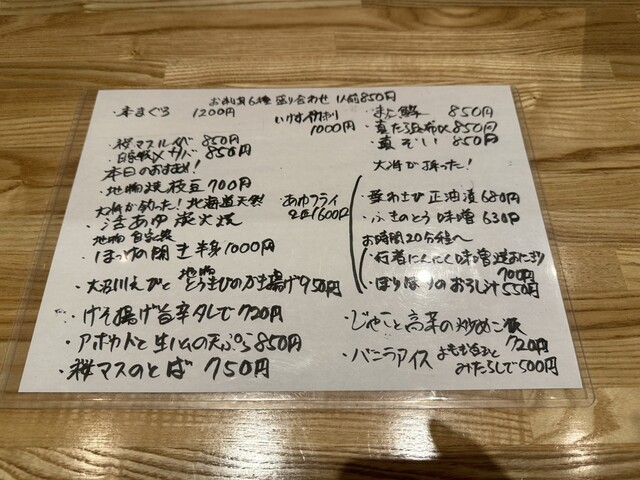 お刺身6種盛り合わせ 1人前850円
・本まぐろ 1200円
1000円
・桜マスルイベ 850円
・自家製〆サバ 850円
本日のおすすめ!
・地物焼枝豆 700円
大将が釣った!北海道天然
・活あゆ炭火焼
あゆフライ
2匹1600円
地物 自家製
ほっけの開き半身1000円
・大沼川えびと地物とうきびのかき揚げ950円
・げそ揚げ旨辛タレで 720円
・アボカドと生ハムの天ぷら850円
・桜マスのとば 750円
850円
・真たち昆布〆850円
・真ぞい 850円
大将が採った!
・葉わさび正油漬 680円
・ふきのとう味噌 630円
お時間20分程へ
・行者にんにく味噌焼おにぎり
700円
のおろし汁 550円
・じゃこと高菜の炒めご飯
720円
・バニラアイス
みたらしで500円